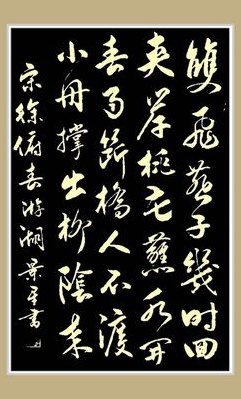 雙飛燕子幾时回
夹岸桃花蘸水开
春雨断橋人不渡
小舟撑出柳陰来
宋徐俯春游湖 景平書